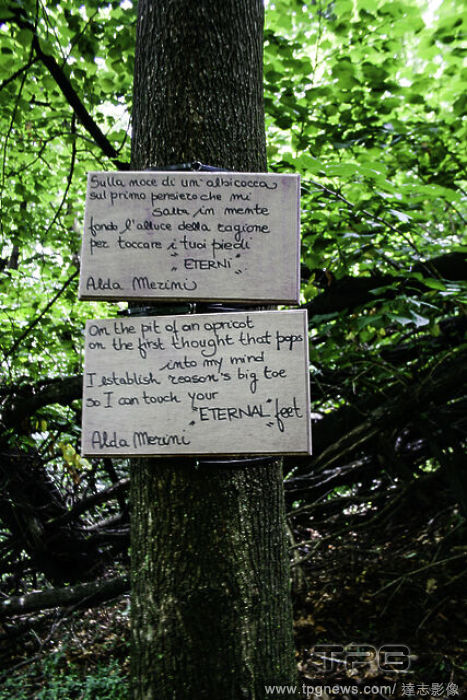 Sulla noce di un' albicocca
sul primo pensiero che mi
salta in mente
fondo l'alluce della ragione
per toccare i tuoi piedi
"ETERNI"
Alda Merini
On the pit of an apricot
on the first thought that pops
into my mind
I establish reason's big toe
so I can touch your
"ETERNAL" feet
Alda Merini
TPG
www.tpgnews.com/達志影像